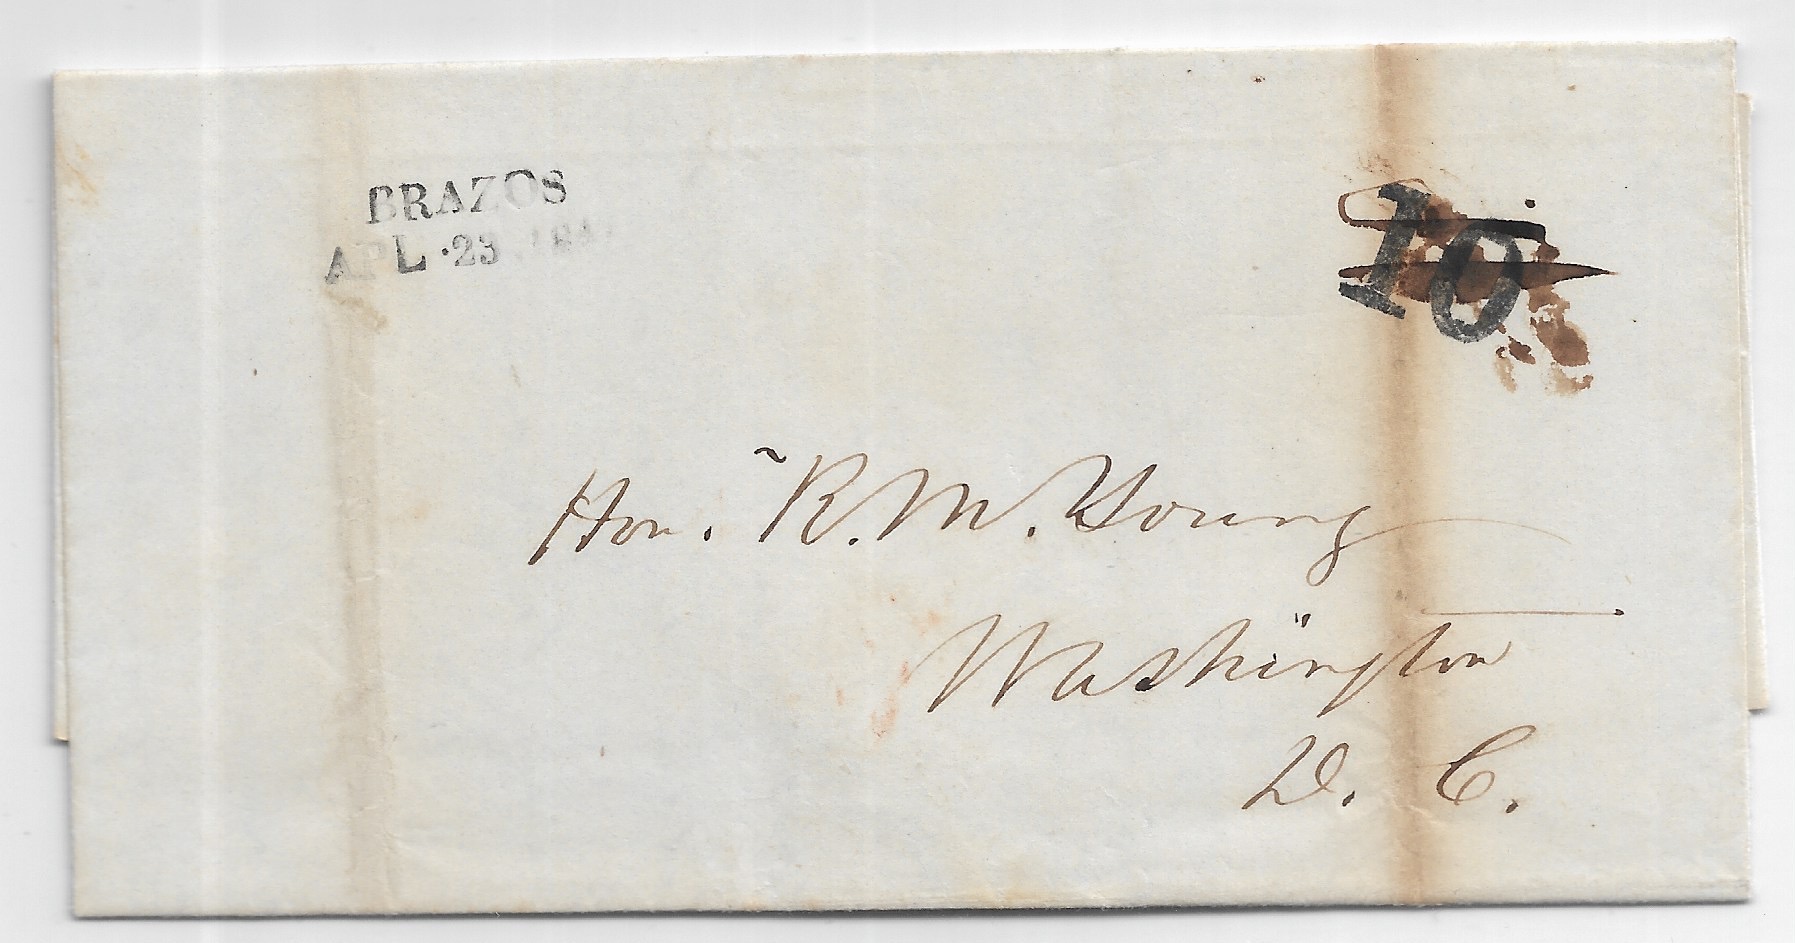 BRAZOS
APL · 23
10
Hon. R. M. Young
Washington
D. C.